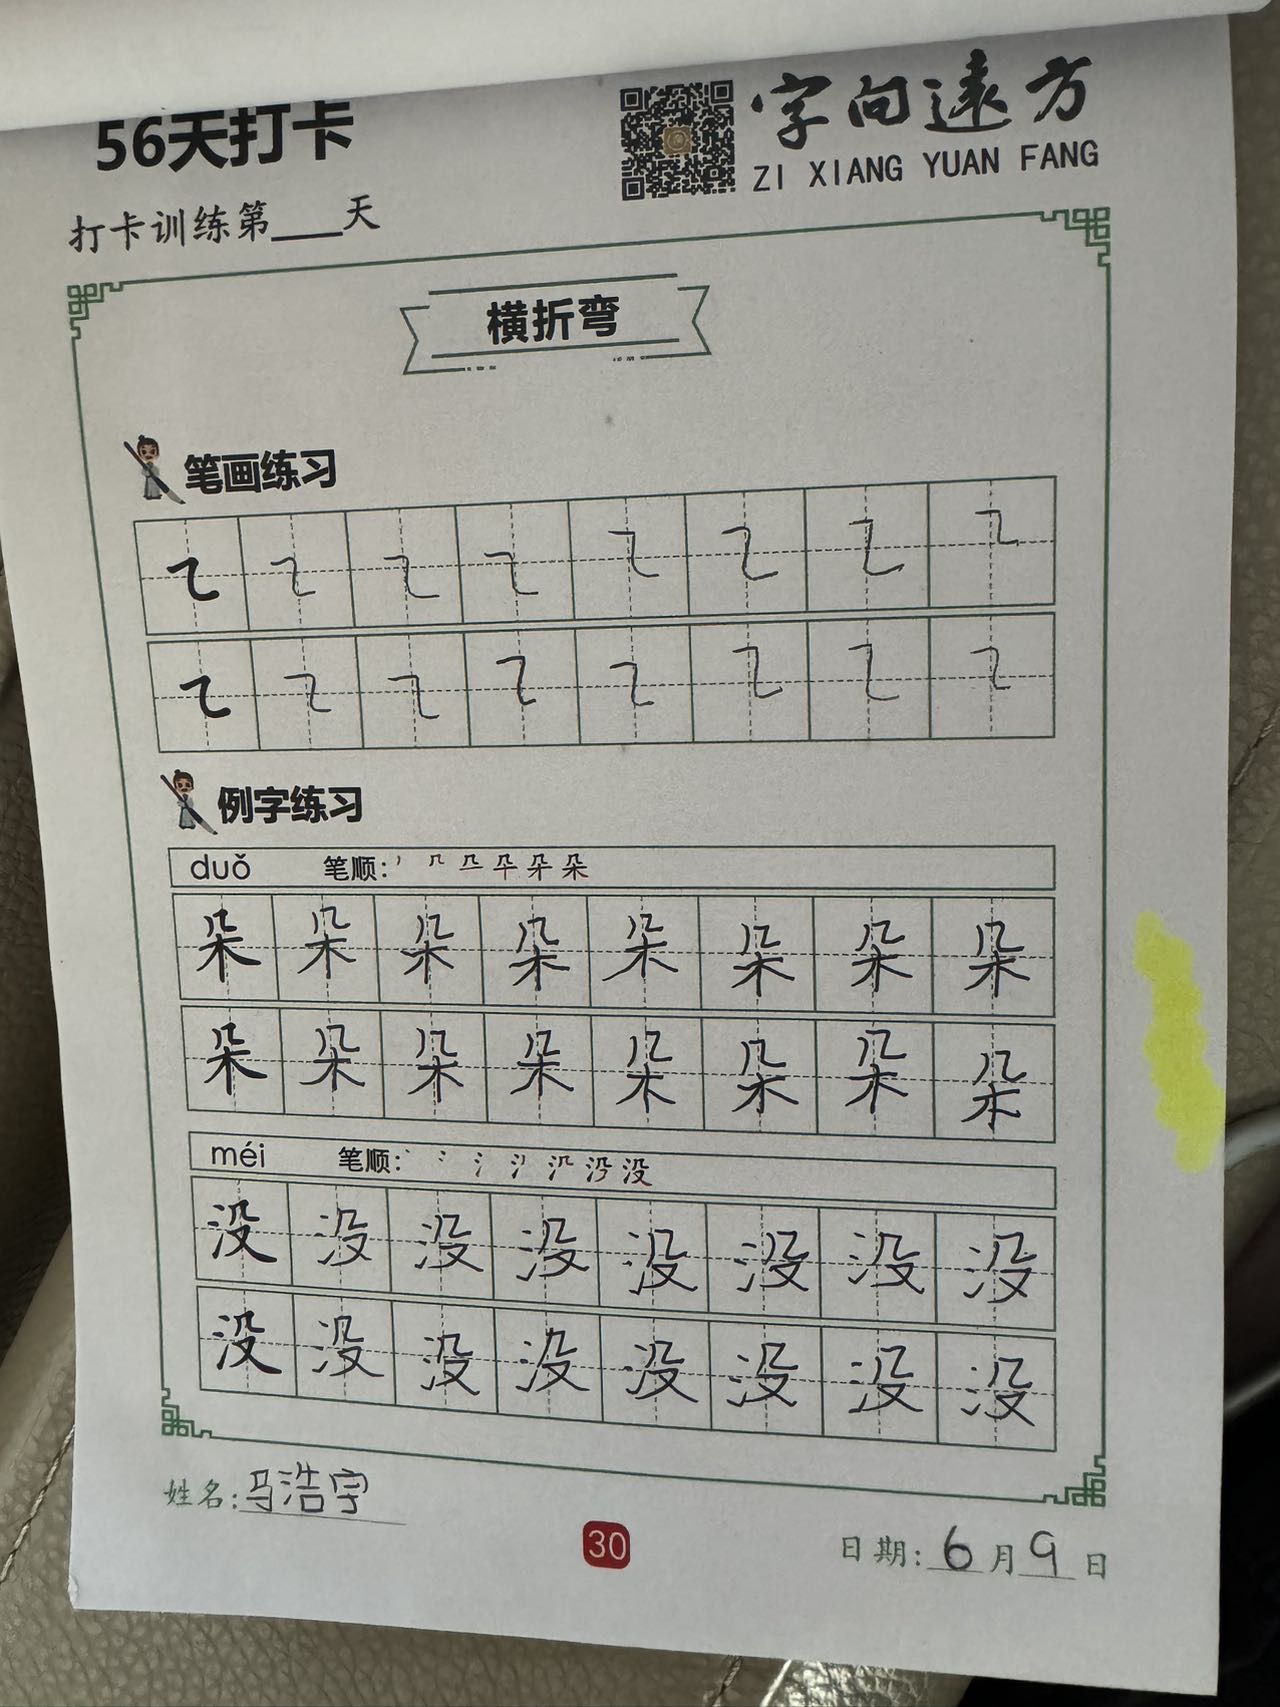 56天打卡
字向遠方
ZI XIANG YUAN FANG
打卡训练第___天
横折弯
笔画练习
㇍ ㇍ ㇍ ㇍ ㇍ ㇍ ㇍ ㇍
㇍ ㇍ ㇍ ㇍ ㇍ ㇍ ㇍ ㇍
例字练习
duǒ 笔顺: 朵
朵 朵 朵 朵 朵 朵 朵 朵
朵 朵 朵 朵 朵 朵 朵 朵
méi 笔顺: 没
没 没 没 没 没 没 没 没
没 没 没 没 没 没 没 没
姓名:马浩宇
30
日期:6月9日